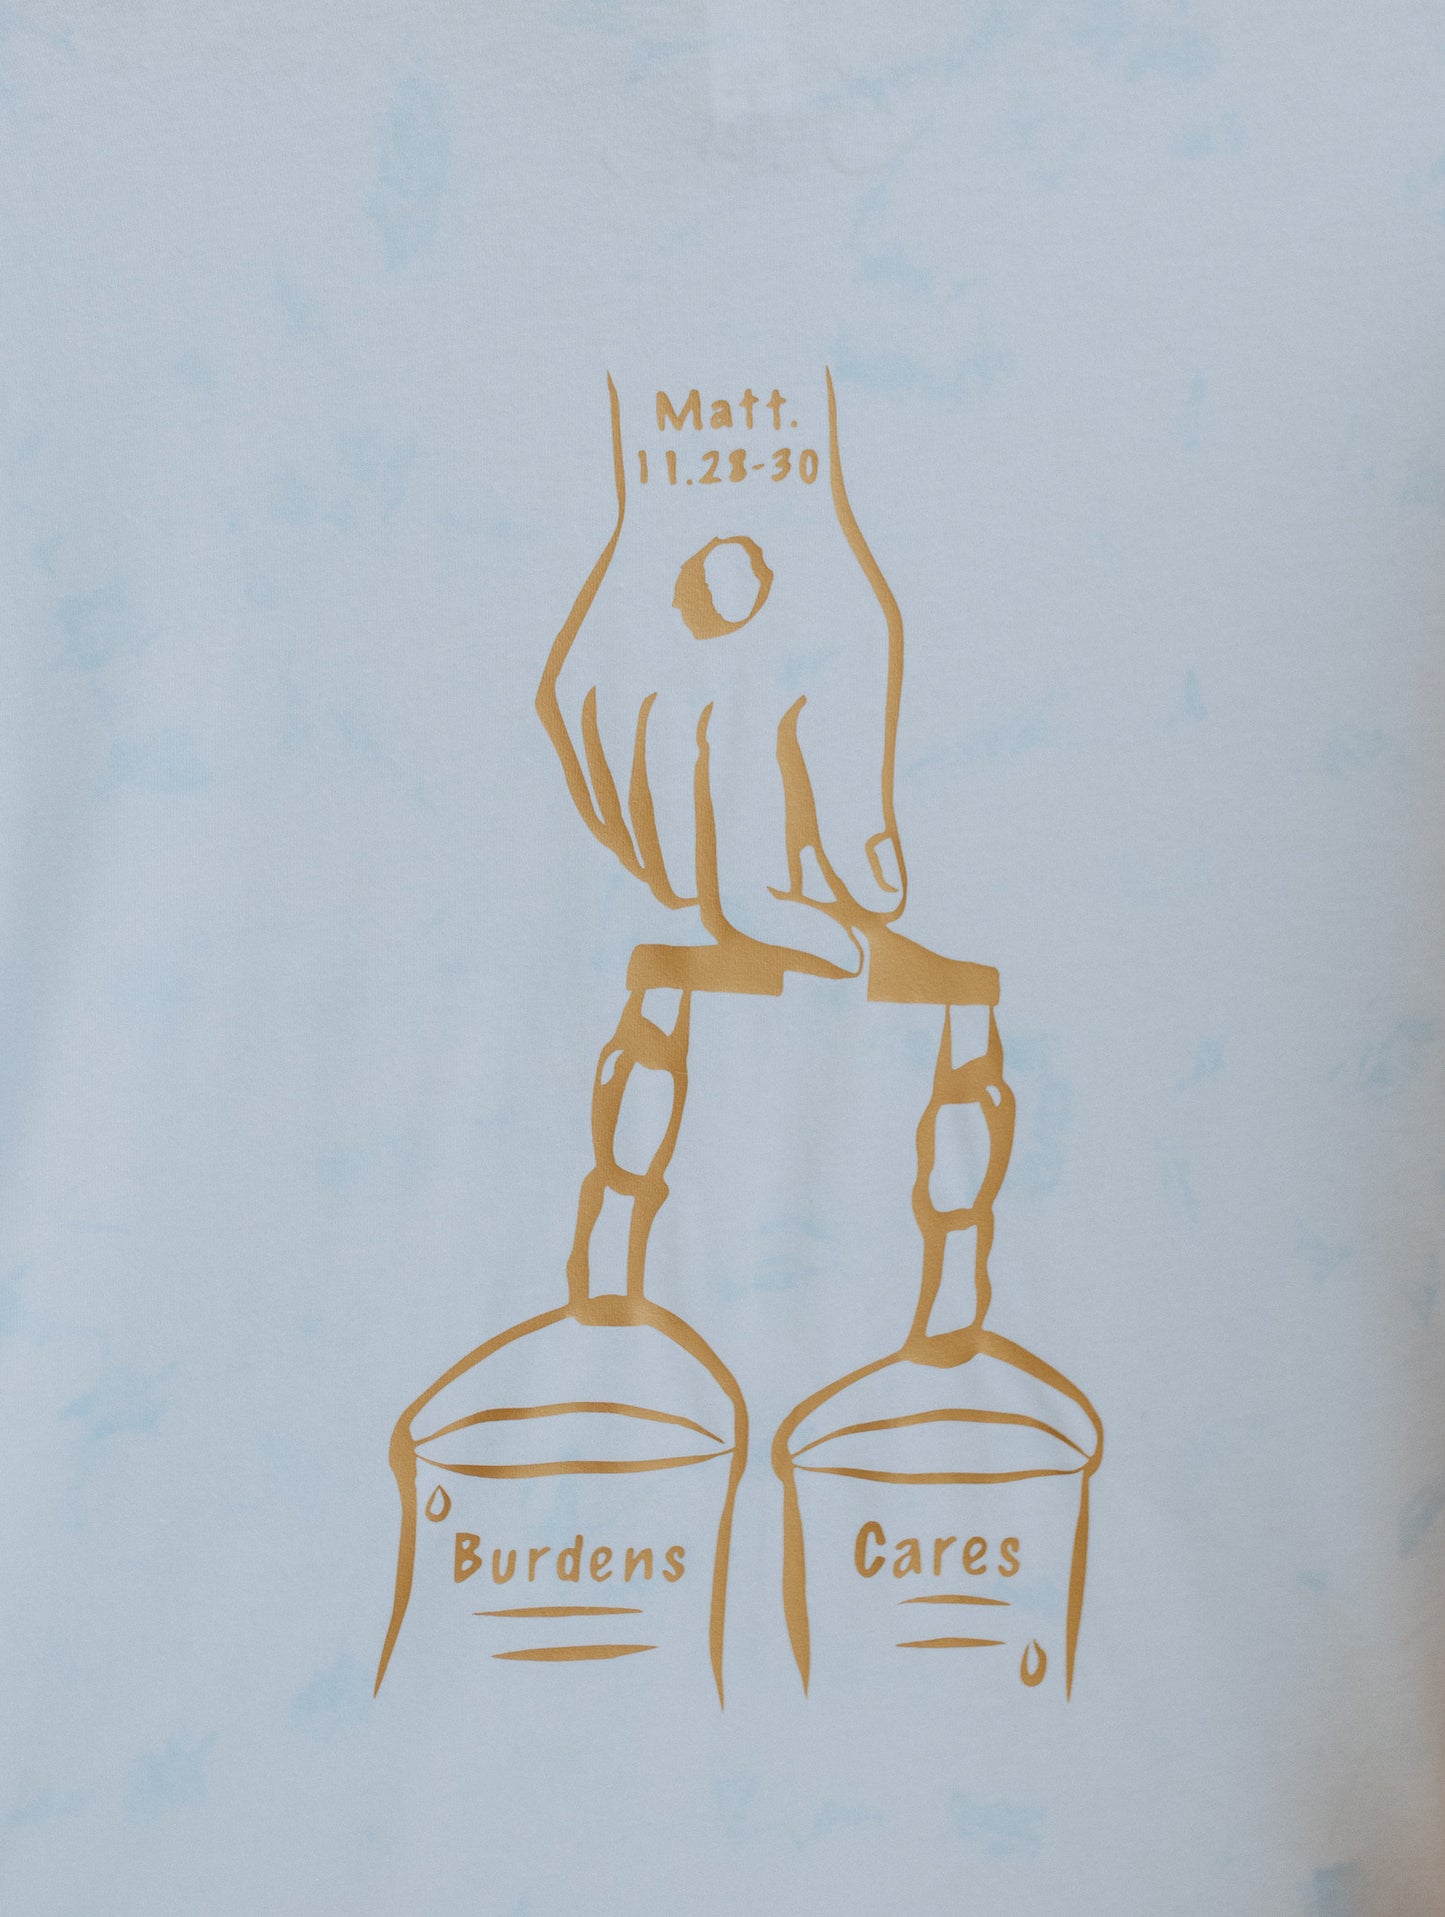 Matt.
11.28-30
Burdens
Cares